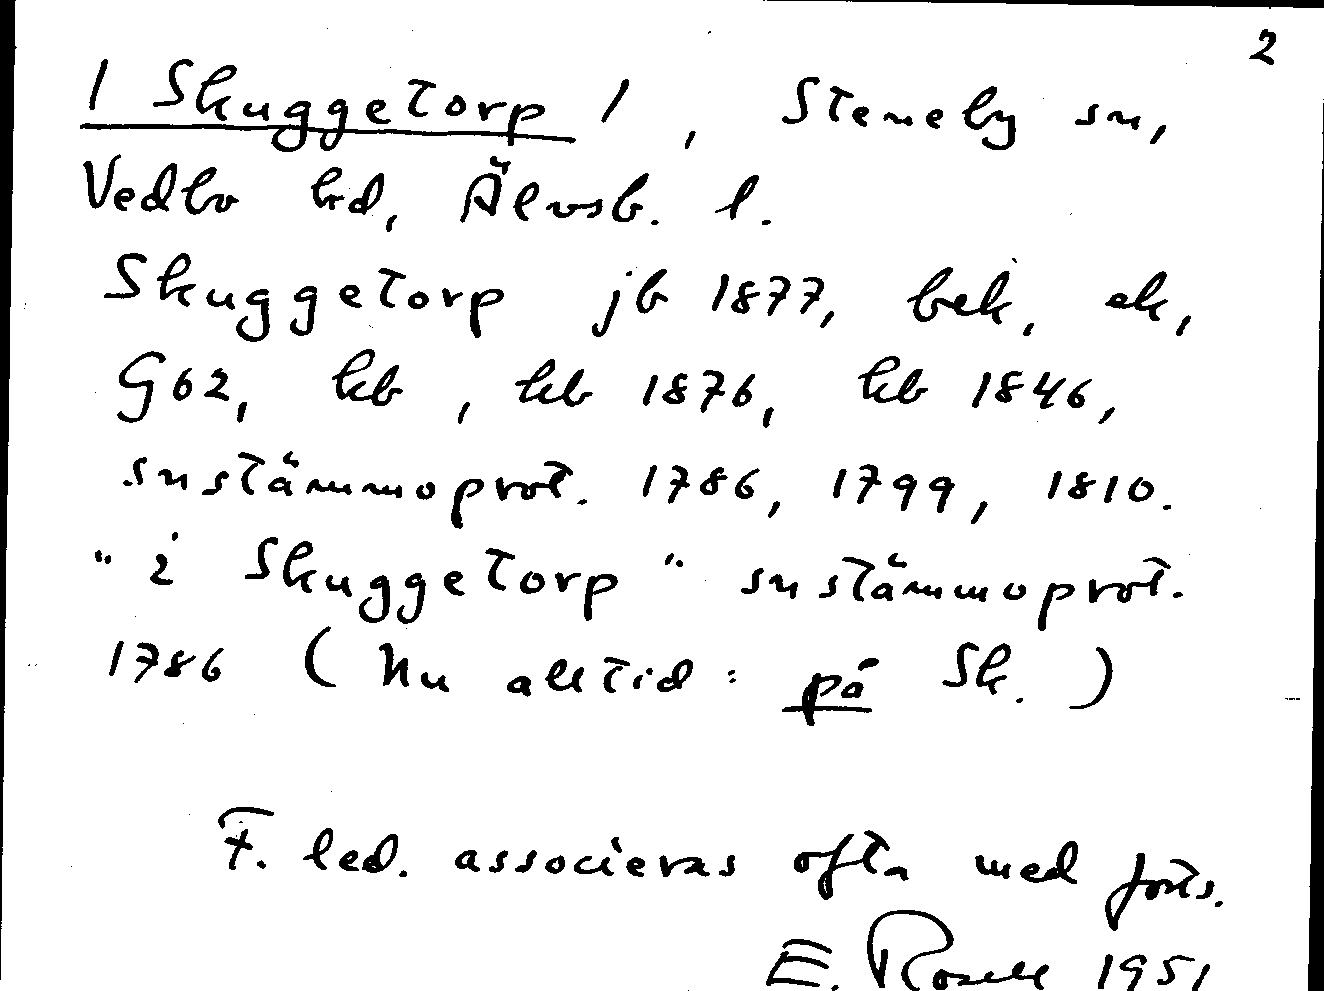 2
/ Skuggetorp / , Steneby sn,
Vedbo hd, Älvsb. l.
Skuggetorp jb 1877, bek, ek,
G62, kb , kb 1876, kb 1846,
snstämmoprot. 1786, 1799, 1810.
"i Skuggetorp" snstämmoprot.
1786 (Nu alltid: på Sk.)
F. led. associeras ofta med forts.
E. Rosell 1951